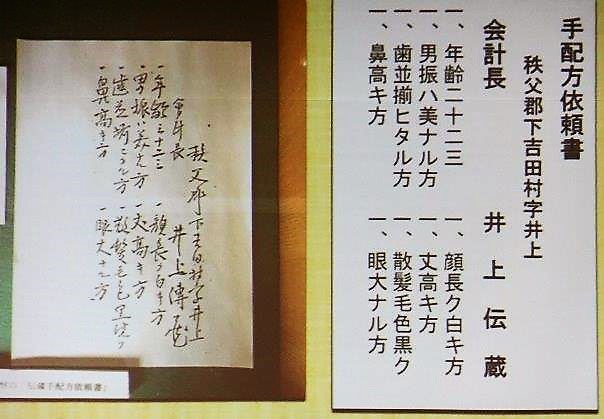 手配方依頼書
秩父郡下吉田村字井上
会計長 井上伝蔵
一、年齢二十二三 一、顔長ク白キ方
一、男振ハ美ナル方 一、丈高キ方
一、歯並揃ヒタル方 一、散髪毛色黒ク
一、鼻高キ方 一、眼大ナル方
秩父郡下吉田村字井上
会計長 井上傳蔵
一年齢二十二三 一顔長ク白キ方
一男振ハ美ナル方 一丈高キ方
一歯並揃ヒタル方 一散髪毛色黒ク
一鼻高キ方 一眼大ナル方
伝蔵手配方依頼書」